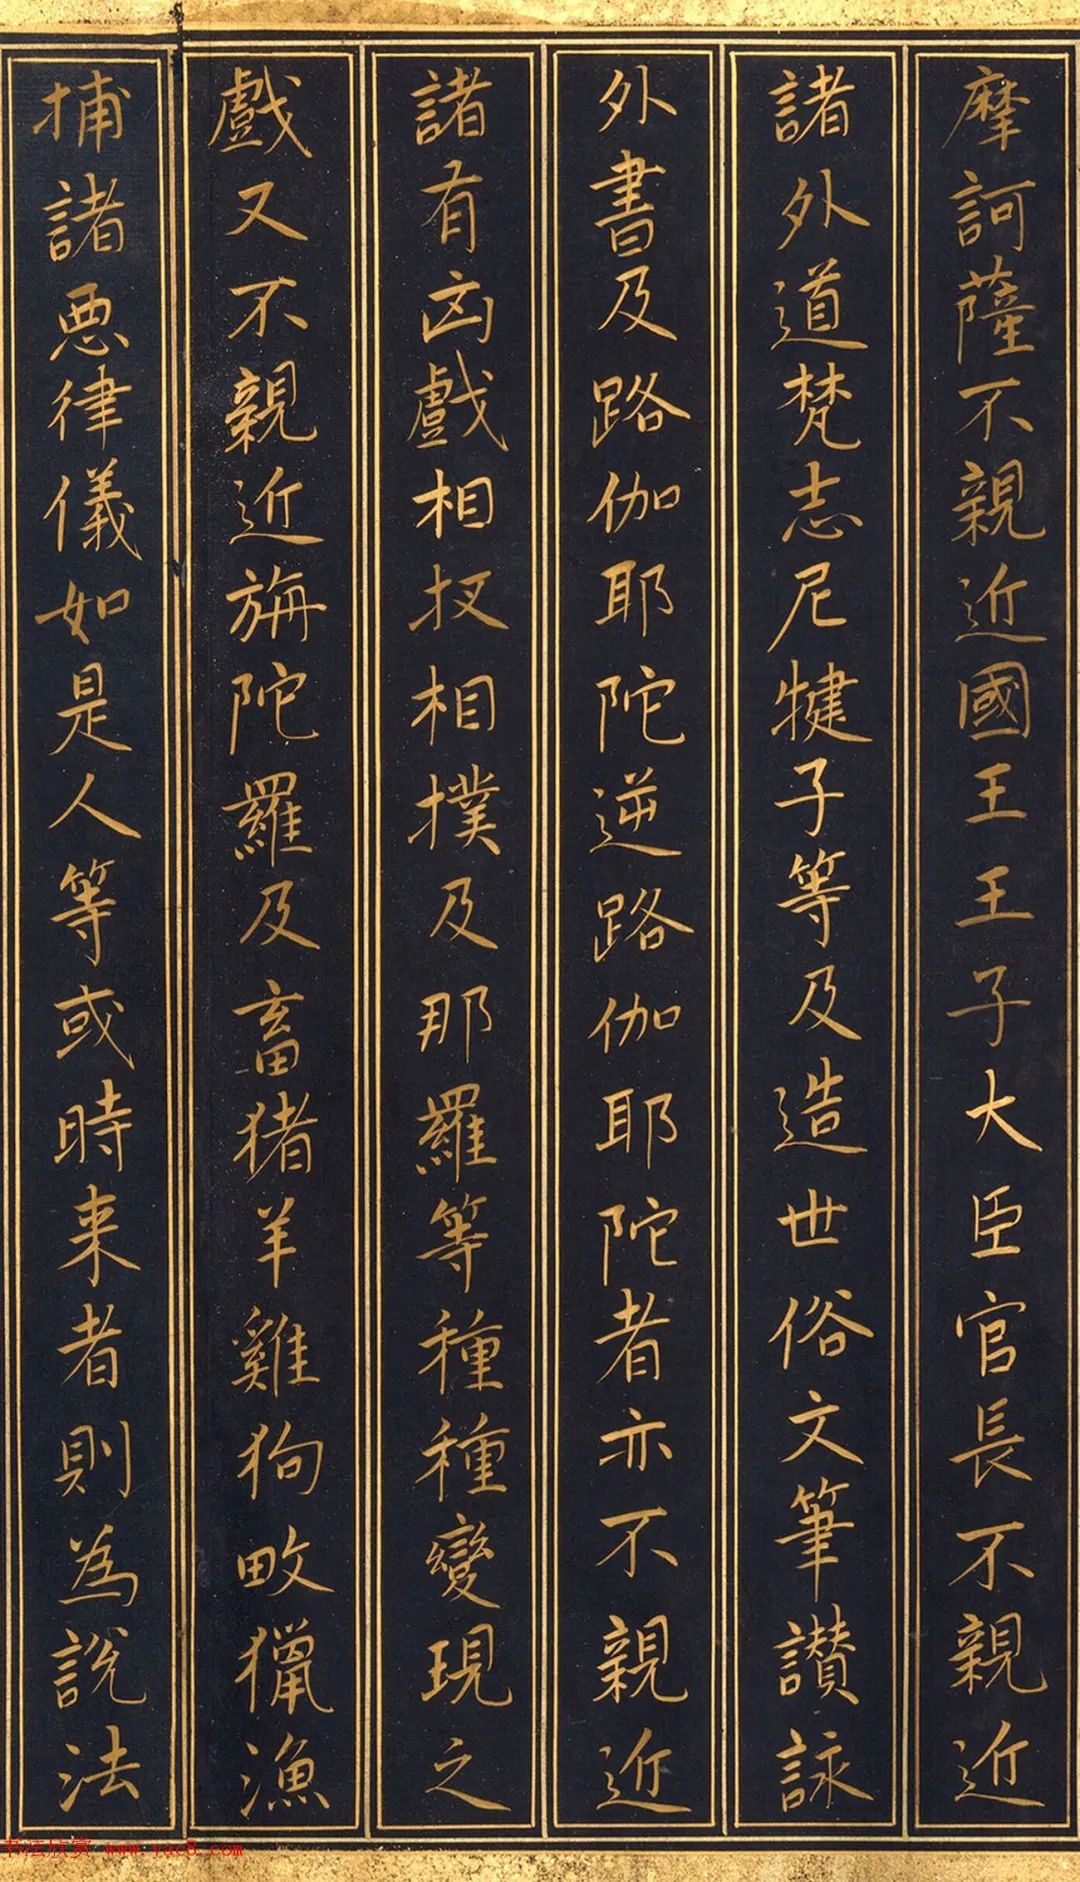 摩訶薩不親近國王王子大臣官長不親近
諸外道梵志尼揵子等及造世俗文筆讃詠
外書及路伽耶陀逆路伽耶陀者亦不親近
諸有凶戲相扠相撲及那羅等種種變現之
戲又不親近旃陀羅及畜猪羊雞狗畋獵漁
捕諸悪律儀如是人等或時来者則為説法
书法欣赏 www.yac8.com